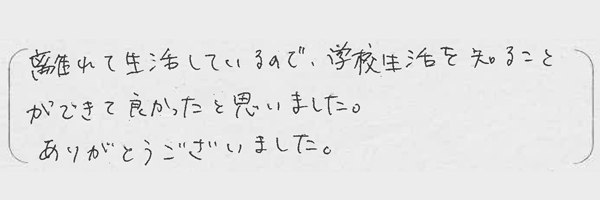 離れて生活しているので、学校生活を知ること
ができて良かったと思いました。
ありがとうございました。